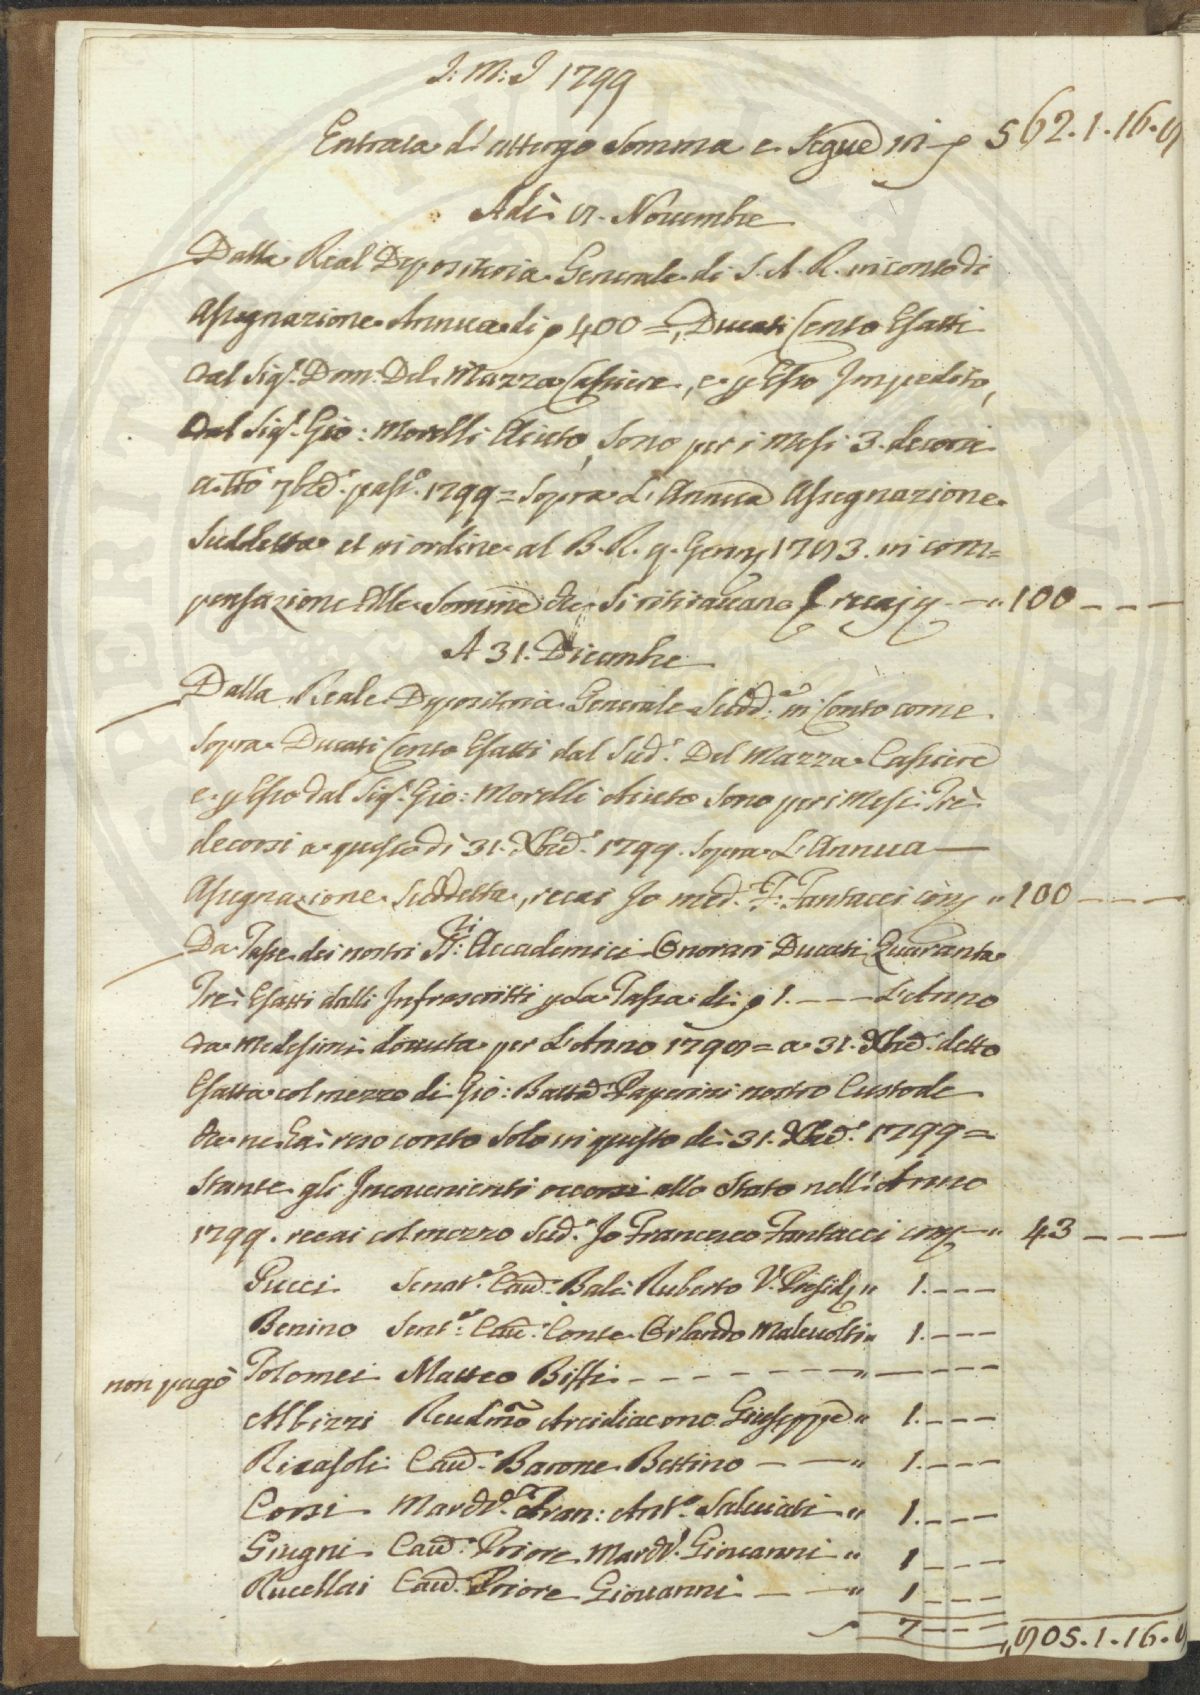 J: M: J 1799
Entrata di attergo Somma e Segue in p 562.1.16.8
Adì 8. Novembre
Dalla Real Depositeria Generale di S. A. R. in conto di
Assegnazione Annua di p 400 =, Ducati Cento Esatti
dal Sigr. Dom: Del Mazza Cassiere, e p Esso Impedito,
dal Sigr. Gio: Morelli Aiuto, Sono per i Mesi 3. decorsi
a tto 7bre. passo. 1799 = Sopra L'Annua Assegnazione
Suddetta et in ordine al B. R. 9. 1783. in com=
pensazione delle Somme che si ritiravano " 100 - - -
A 31. Dicembre
Dalla Reale Depositeria Generale Sudd.a in Conto come
Sopra Ducati Cento Esatti dal Sud.o Del Mazza Cassiere
e p Esso dal Sigr. Gio: Morelli Aiuto Sono per i Mesi Trè
decorsi a questo dì 31. Xbre. 1799. Sopra L'Annua
Assegnazione Suddetta, recai Jo med.o F: Fantacci " 100 - - -
Da Tasse dei nostri SS.ri: Accademici Onorari Ducati Quaranta
Trè Esatti dalli Infrascritti p La Tassa di p 1. - - - L'Anno
da Medesimi dovuta per L'Anno 1798 = a 31. Xbre. detto
Esatta col mezzo di Gio: Batta Paperini nostro Custode
che ne ha reso conto Solo in questo dì 31. Xbre. 1799 =
Stante gli Inconvenienti occorsi allo Stato nell'Anno
1799. recai col mezzo Sud.o Jo Francesco Fantacci " 43 - - -
Pucci Senat.e Cav.e Balì Ruberto V. Presid. " 1. - - -
Benino Sent.e Cav.e Conte Orlando Malevolti " 1. - - -
non pagò Tolomei Matteo Biffi - - - - - " - - - -
Albizzi Reudmo Arcidiacono Giuseppe " 1. - - -
Ricasoli Cav.e Barone Bettino - - " 1. - - -
Corsi March.e Fran: Ant.o Salviati " 1. - - -
Giugni Cav.e Priore March.e Giovanni " 1 - - -
Rucellai Cav.e Priore Giovanni - - " 1 - - -
p 7 - - - " 805.1.16.8